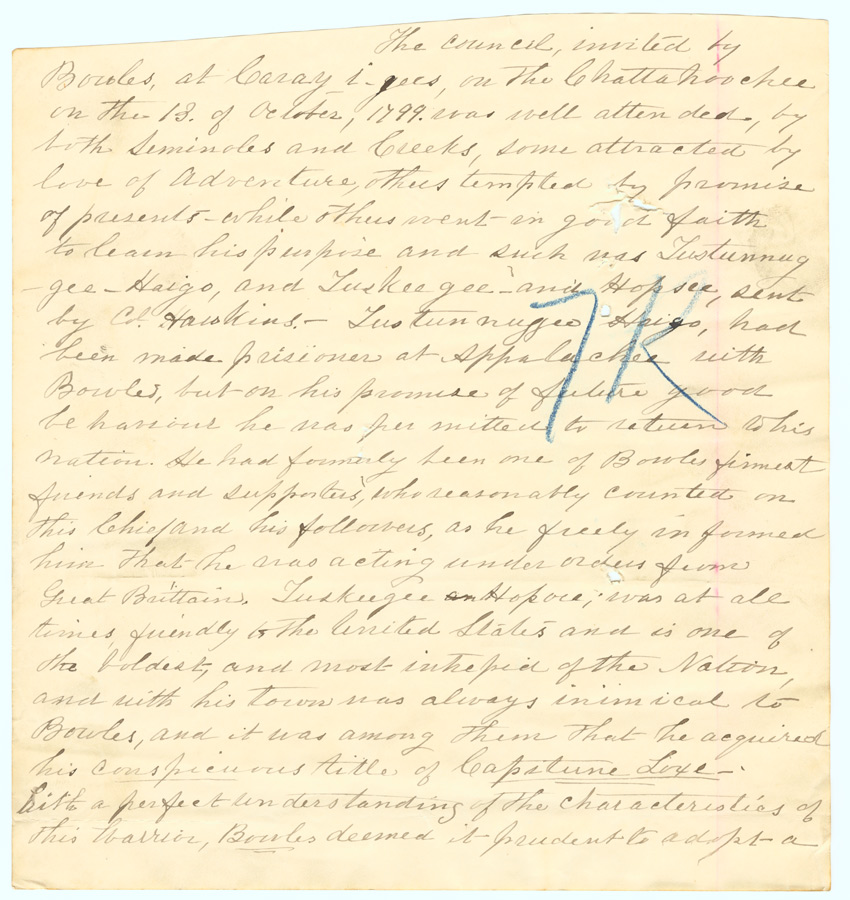 The council, invited by
Bowles, at Caray i-gees, on the Chattahoochee
on the 13. of October, 1799. was well attended, by
both Seminoles and Creeks, some attracted by
love of Adventure, others tempted by promise
of presents - while others went in good faith
to learn his purpose and such was Tustunnug
-gee - Haigo, and Tuskeegee - and Hopsee, sent
by Col. Hawkins. - Tustunnuggee Haigo, had
been made prisioner at Appalachee with
Bowles, but on his promise of future good
behaviour he was permitted to return to his
nation. He had formerly been one of Bowles firmest
friends and supporters, who reasonably counted on
this Chief and his followers, as he freely informed
him that he was acting under orders from
Great Brittain. Tuskeegee an Hopoie; was at all
times, friendly to the United States and is one of
the boldest, and most intrepid of the Nation,
and with his town was always inimical to
Bowles, and it was among them that he acquired
his conspicuous title of Capitune Loxe -
With a perfect understanding of the characteristics of
this Warrior, Bowles deemed it prudent to adopt a
7K